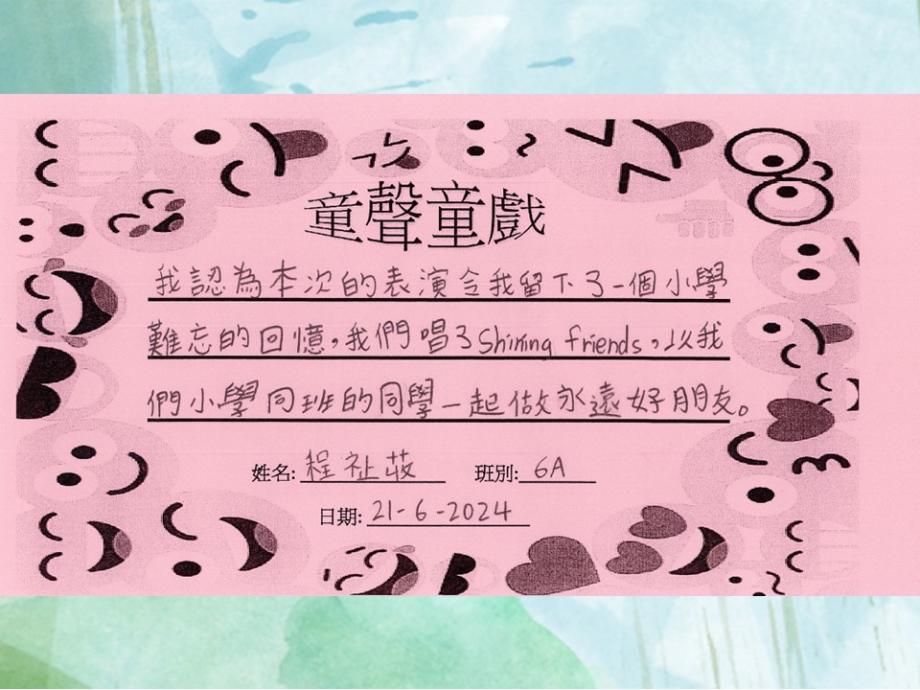 童聲童戲
我認為本次的表演令我留下了一個小學
難忘的回憶，我們唱了Shining friends，以我
們小學同班的同學一起做永遠好朋友。
姓名: 程祉菽 班別: 6A
日期: 21-6-2024